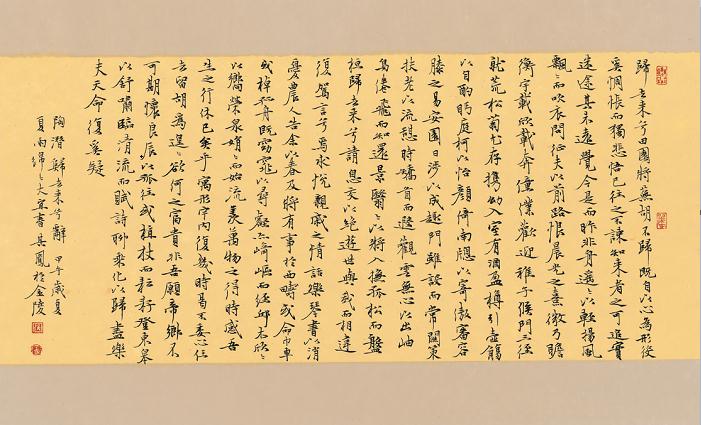 歸去來兮田園將蕪胡不歸既自以心為形役
奚惆悵而獨悲悟已往之不諫知來者之可追實
迷途其未遠覺今是而昨非舟遙遙以輕揚風
飄飄而吹衣問征夫以前路恨晨光之熹微乃瞻
衡宇載欣載奔僮僕歡迎稚子候門三徑
就荒松菊猶存攜幼入室有酒盈樽引壺觴
以自酌眄庭柯以怡顏倚南窗以寄傲審容
膝之易安園日涉以成趣門雖設而常關策
扶老以流憩時矯首而遐觀雲無心以出岫
鳥倦飛而知還景翳翳以將入撫孤松而盤
桓歸去來兮請息交以絕遊世與我而相違
復駕言兮焉求悅親戚之情話樂琴書以消
憂農人告余以春及將有事於西疇或命巾車
或棹孤舟既窈窕以尋壑亦崎嶇而經邱木欣欣
以嚮榮泉涓涓而始流羨萬物之得時感吾
生之行休已矣乎寓形宇內復幾時曷不委心任
去留胡為遑遑欲何之富貴非吾願帝鄉不
可期懷良辰以孤往或植杖而耘耔登東皋
以舒嘯臨清流而賦詩聊乘化以歸盡樂
夫天命復奚疑
陶潛歸去來兮辭 甲午歲夏
夏雨 書 鳳於金陵